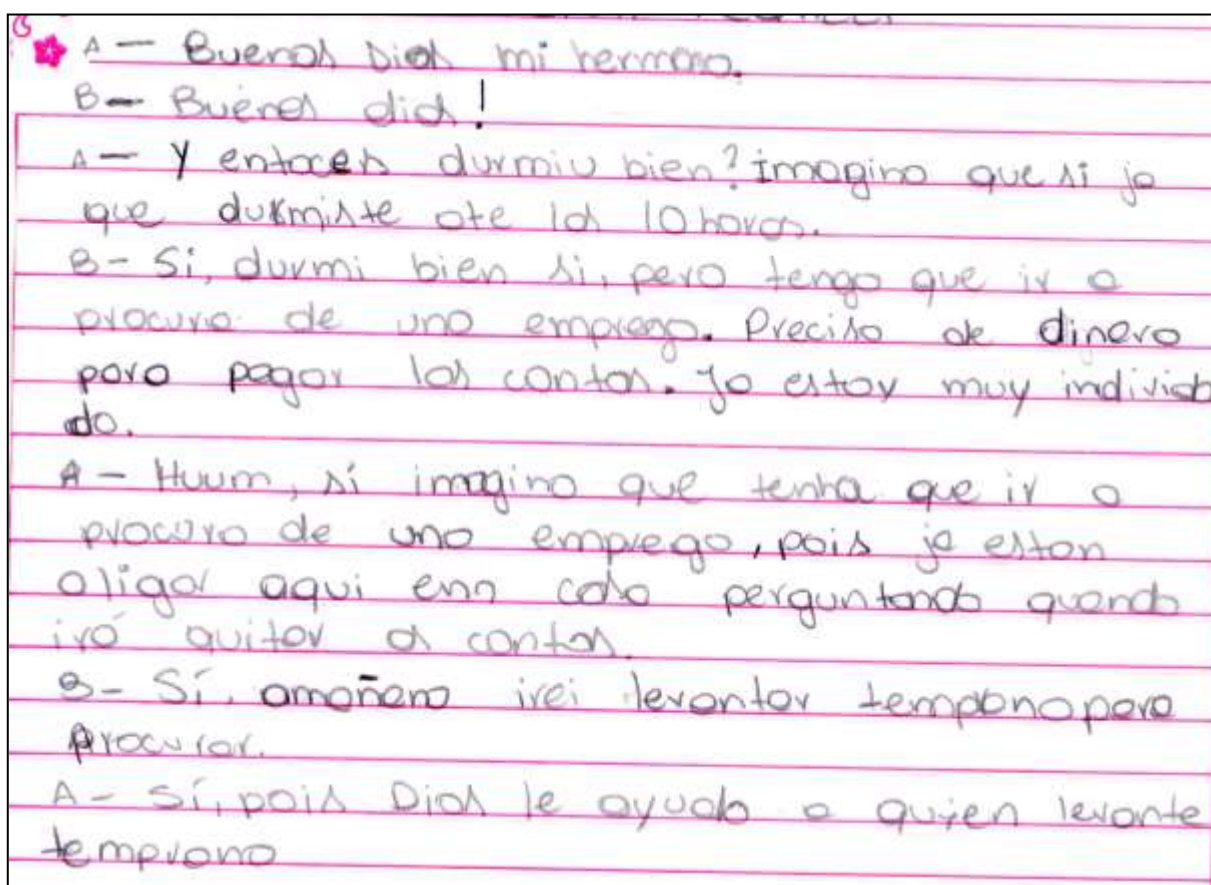 A — Buenos Dias mi hermano.
B — Buenos dias!
A — Y entoces durmiu bien? Imagino que si ja
que durmiste ate las 10 horas.
B - Si, durmi bien si, pero tengo que ir a
procura de uno emprego. Preciso de dinero
para pagar las contas. Jo estoy muy individa
do.
A - Huum, sí imagino que tenha que ir a
procura de uno emprego, pois ja estan
a ligar aqui enn casa perguntando quando
irá quitar as contas.
B - Sí, amañana irei levantar temprano para
procurar.
A - Sí, pois Dios le ayuda a quien levante
temprano